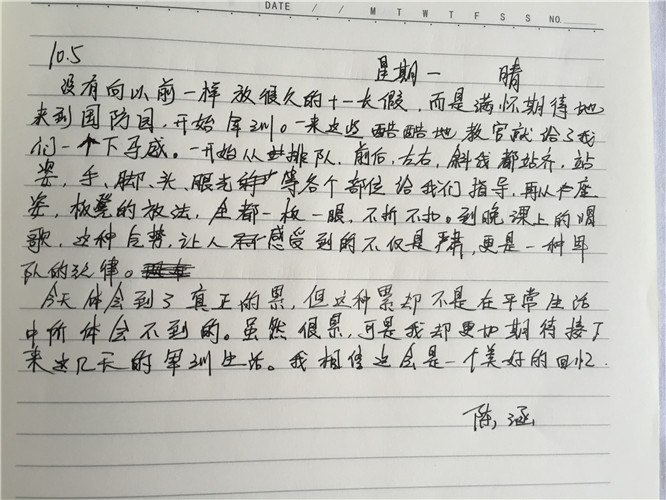 DATE / / M T W T F S S NO.
10.5 星期一 晴
没有向以前一样放很久的十一长假,而是满怀期待地
来到国防园,开始军训。一来这些酷酷地教官就给了我
们一个下马威。一开始从排队,前后,左右,斜线都站齐,站
姿,手、脚、头、眼光等各个部位给我们指导,再从座
姿,板凳的放法,全都一板一眼,不折不扣。到晚课上的唱
歌,这种气势,让人感受到的不仅是严肃,更是一种军
队的纪律。
今天体会到了真正的累,但这种累却不是在平常生活
中所体会不到的。虽然很累,可是我却更加期待接下
来这几天的军训生活。我相信这会是一个美好的回忆.
陈涵